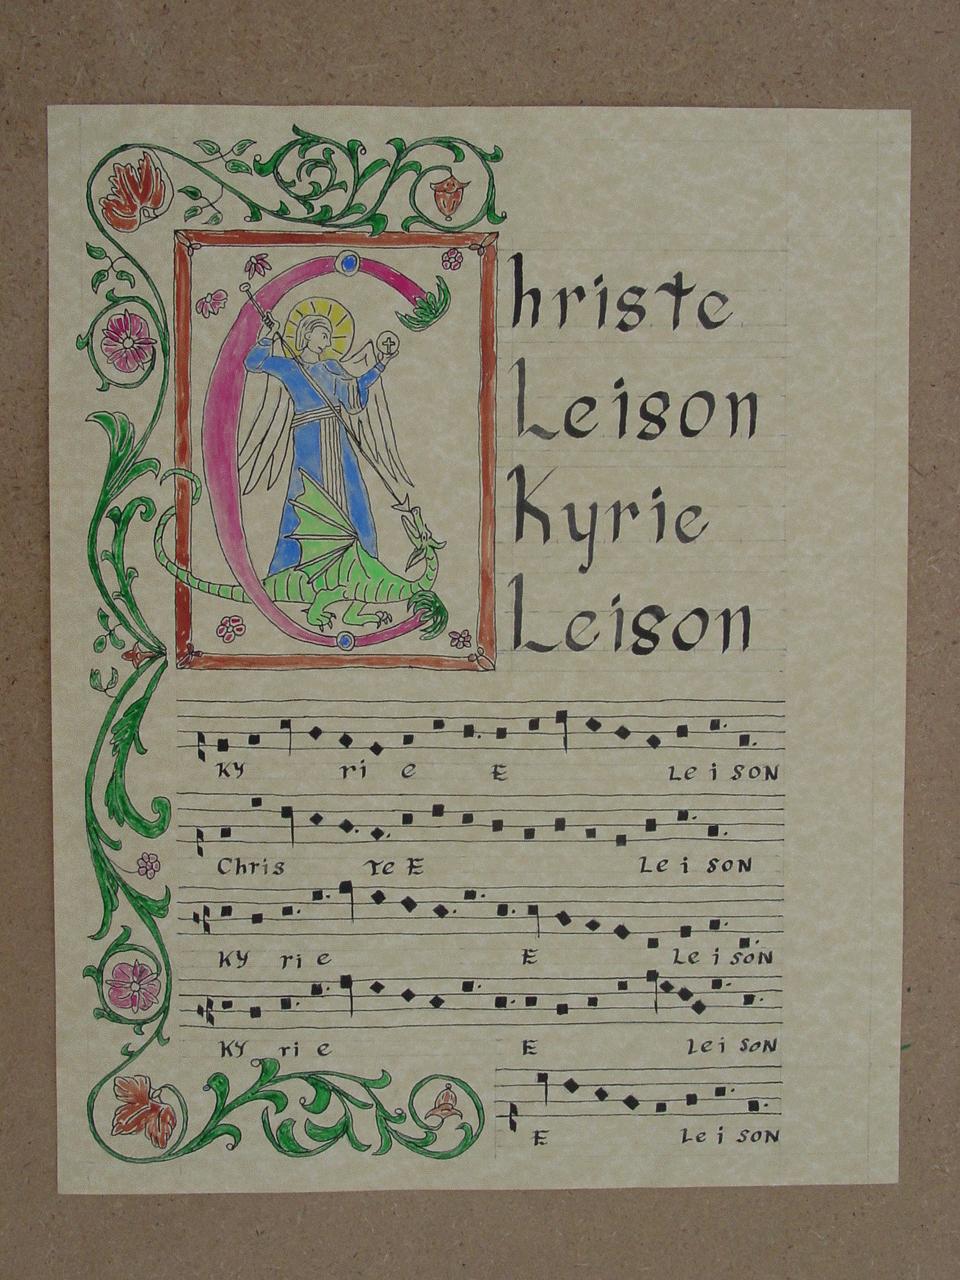 Christe
Leison
Kyrie
Leison
Ky ri e E Leison
Chris Te E Leison
Ky rie E Leison
Ky rie E Leison
E Leison